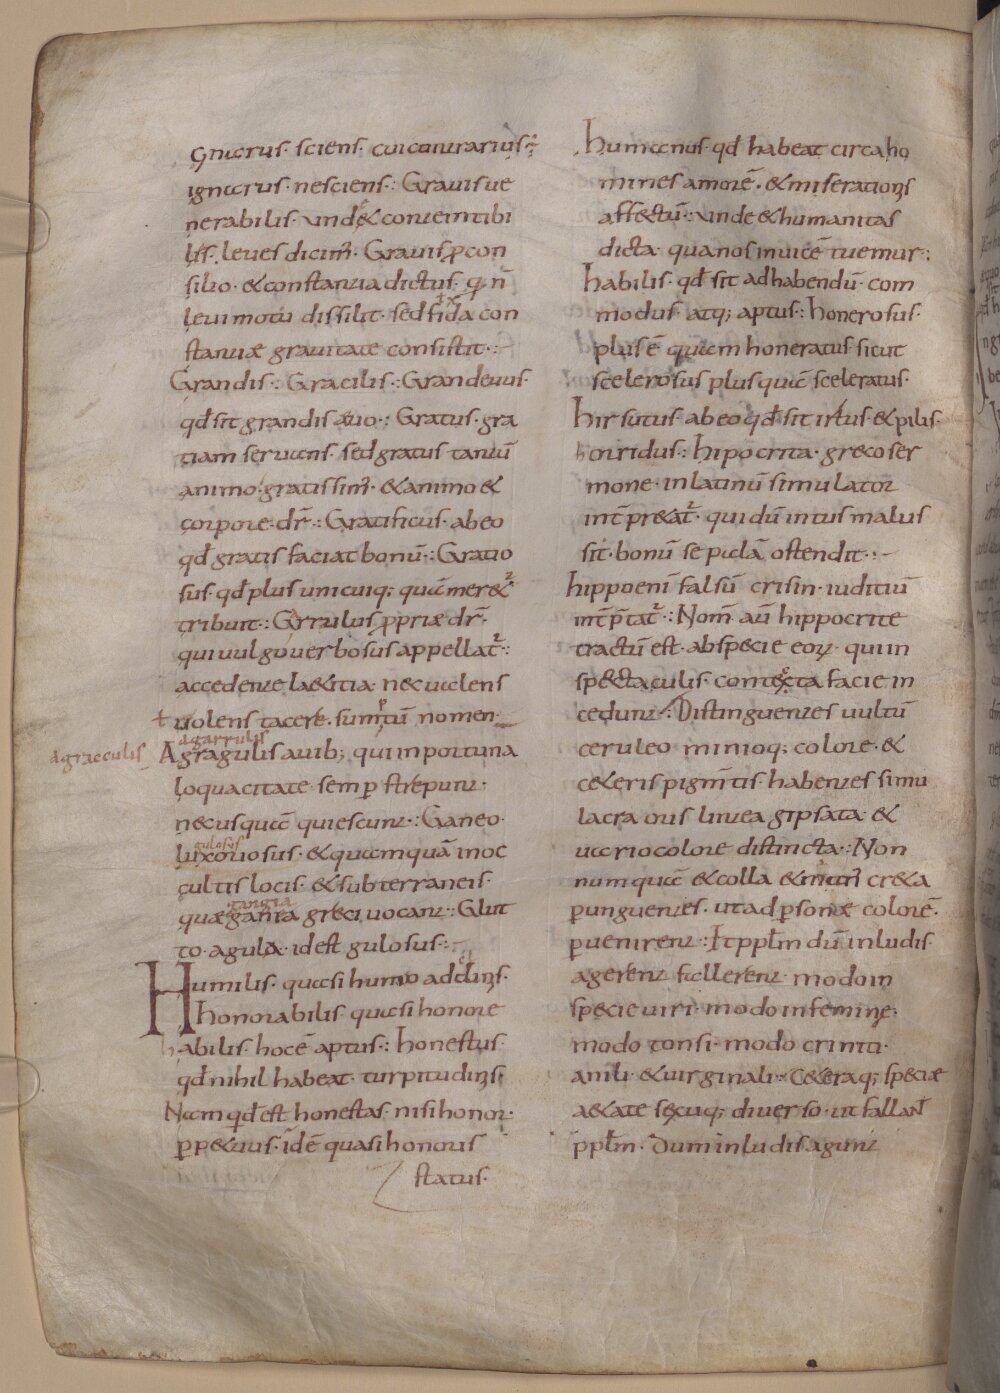 gnarus· sciens· cui contrarius·:
ignarus· nesciens·: Gravis ve
nerabilis· unde & contemtibi
lis· leves dicim̄· Gravis ꝓ con
silio· & constantia dictus· q̄ n̄
levi motu dissilit· sed fixa
fida con
stantiæ gravitate consistit·:
Grandis·: Gracilis·: Grandevus·
qđ sit grandis ævo·: Gratus· gra
tiam servans· sed gratus tantū
animo· gratissim̄· & animo &
corpore· dr̄·: Gratificus· ab eo
qđ gratis faciat bonū·: Gratio
sus· qđ plus unicuiq; quā mer&ur
tribuit·: Garrulus ꝓpriæ dr̄·
qui vulgo verbosus appellat·:
accedente læ&itia· nec valens
+ nolens tacere· sumptū nomen
agraculis
agarrulis
A gragulis avib; qui inportuna
loquacitate semp̄ strepunt·
nec usquā quiescunt·: Ganeo·
gulosus
luxoriosus· & quamquā in oc
cultis locis· & subterraneis·
tangia
quæ ganea greci vocant·: Glut
to· a gula· id est gulosus·:
Humilis· quasi humo adclinis·
Honorabilis· quasi honore
habilis· hoc ē aptus·: Honestus·
qđ nihil habeat· turpitudinis·
Nam qđ est honestas· nisi honor·
ꝑp&uus· id ē quasi honoris
status·
Humanus· qđ habeat circa ho
mines amorē· & miserationis
affectū·: unde & humanitas
dicta· qua nos invicē tuemur·:
Habilis· qđ sit ad habendū· com
modus· atq; aptus·: Honerosus·
plus ē quam honeratus· sicut
scelerosus plus quā sceleratus·
Hirsutus· ab eo qđ sit irtus· & pilis·
horridus·: Hipocrita· greco ser
mone· in latinū simulator
int̄pr&at̄· qui dū intus malus
sit· bonū se palā ostendit·:
Hippo enī falsū crisin· iuditiū
int̄p̄tat̄·: Nom̄ aū hippocrite
tractū est· ab specie eoꝝ· qui in
spectaculis· contecta facie in
cedunt·: Distinguentes vultū
ceruleo minioq; colore· &
c&eris pigm̄tis· habentes simu
lacra oris lintea gipsata· &
vario colore distincta·: Non
numquā & colla & man̄ cr&a
perunguentes· ut ad ꝑsonæ colorē·
ꝑvenirent·: & ppl̄m dū in ludis·
agerent fallerent· modo in
specie viri· modo in femine·
modo tonsi· modo criniti·
anili· & virginali· c&eraq; speciæ
a&ate sexuq; diverso· ut fallant
ppl̄m· dum in ludis agunt